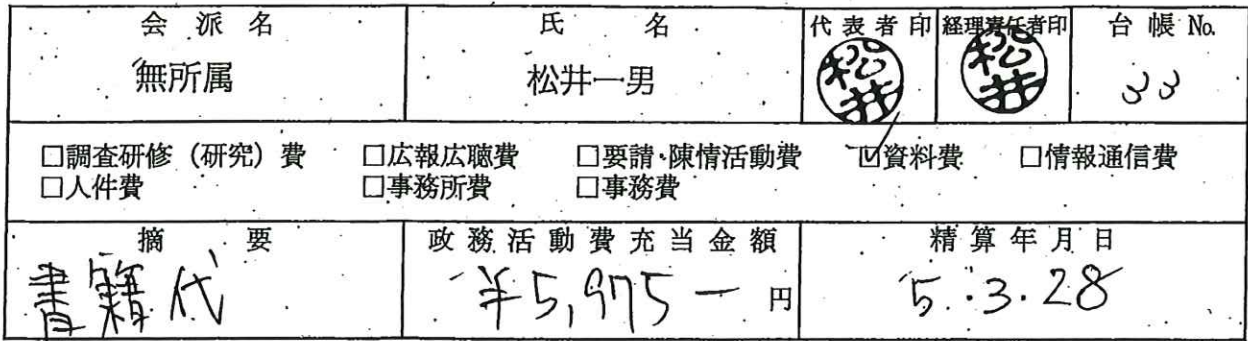 会派名 氏名 代表者印 経理責任者印 台帳No.
無所属 松井一男 松井 松井 33
□調査研修（研究）費 □広報広聴費 □要請・陳情活動費 ☑資料費 □情報通信費
□人件費 □事務所費 □事務費
摘要 政務活動費充当金額 精算年月日
書籍代 ¥5,975− 円 5.3.28